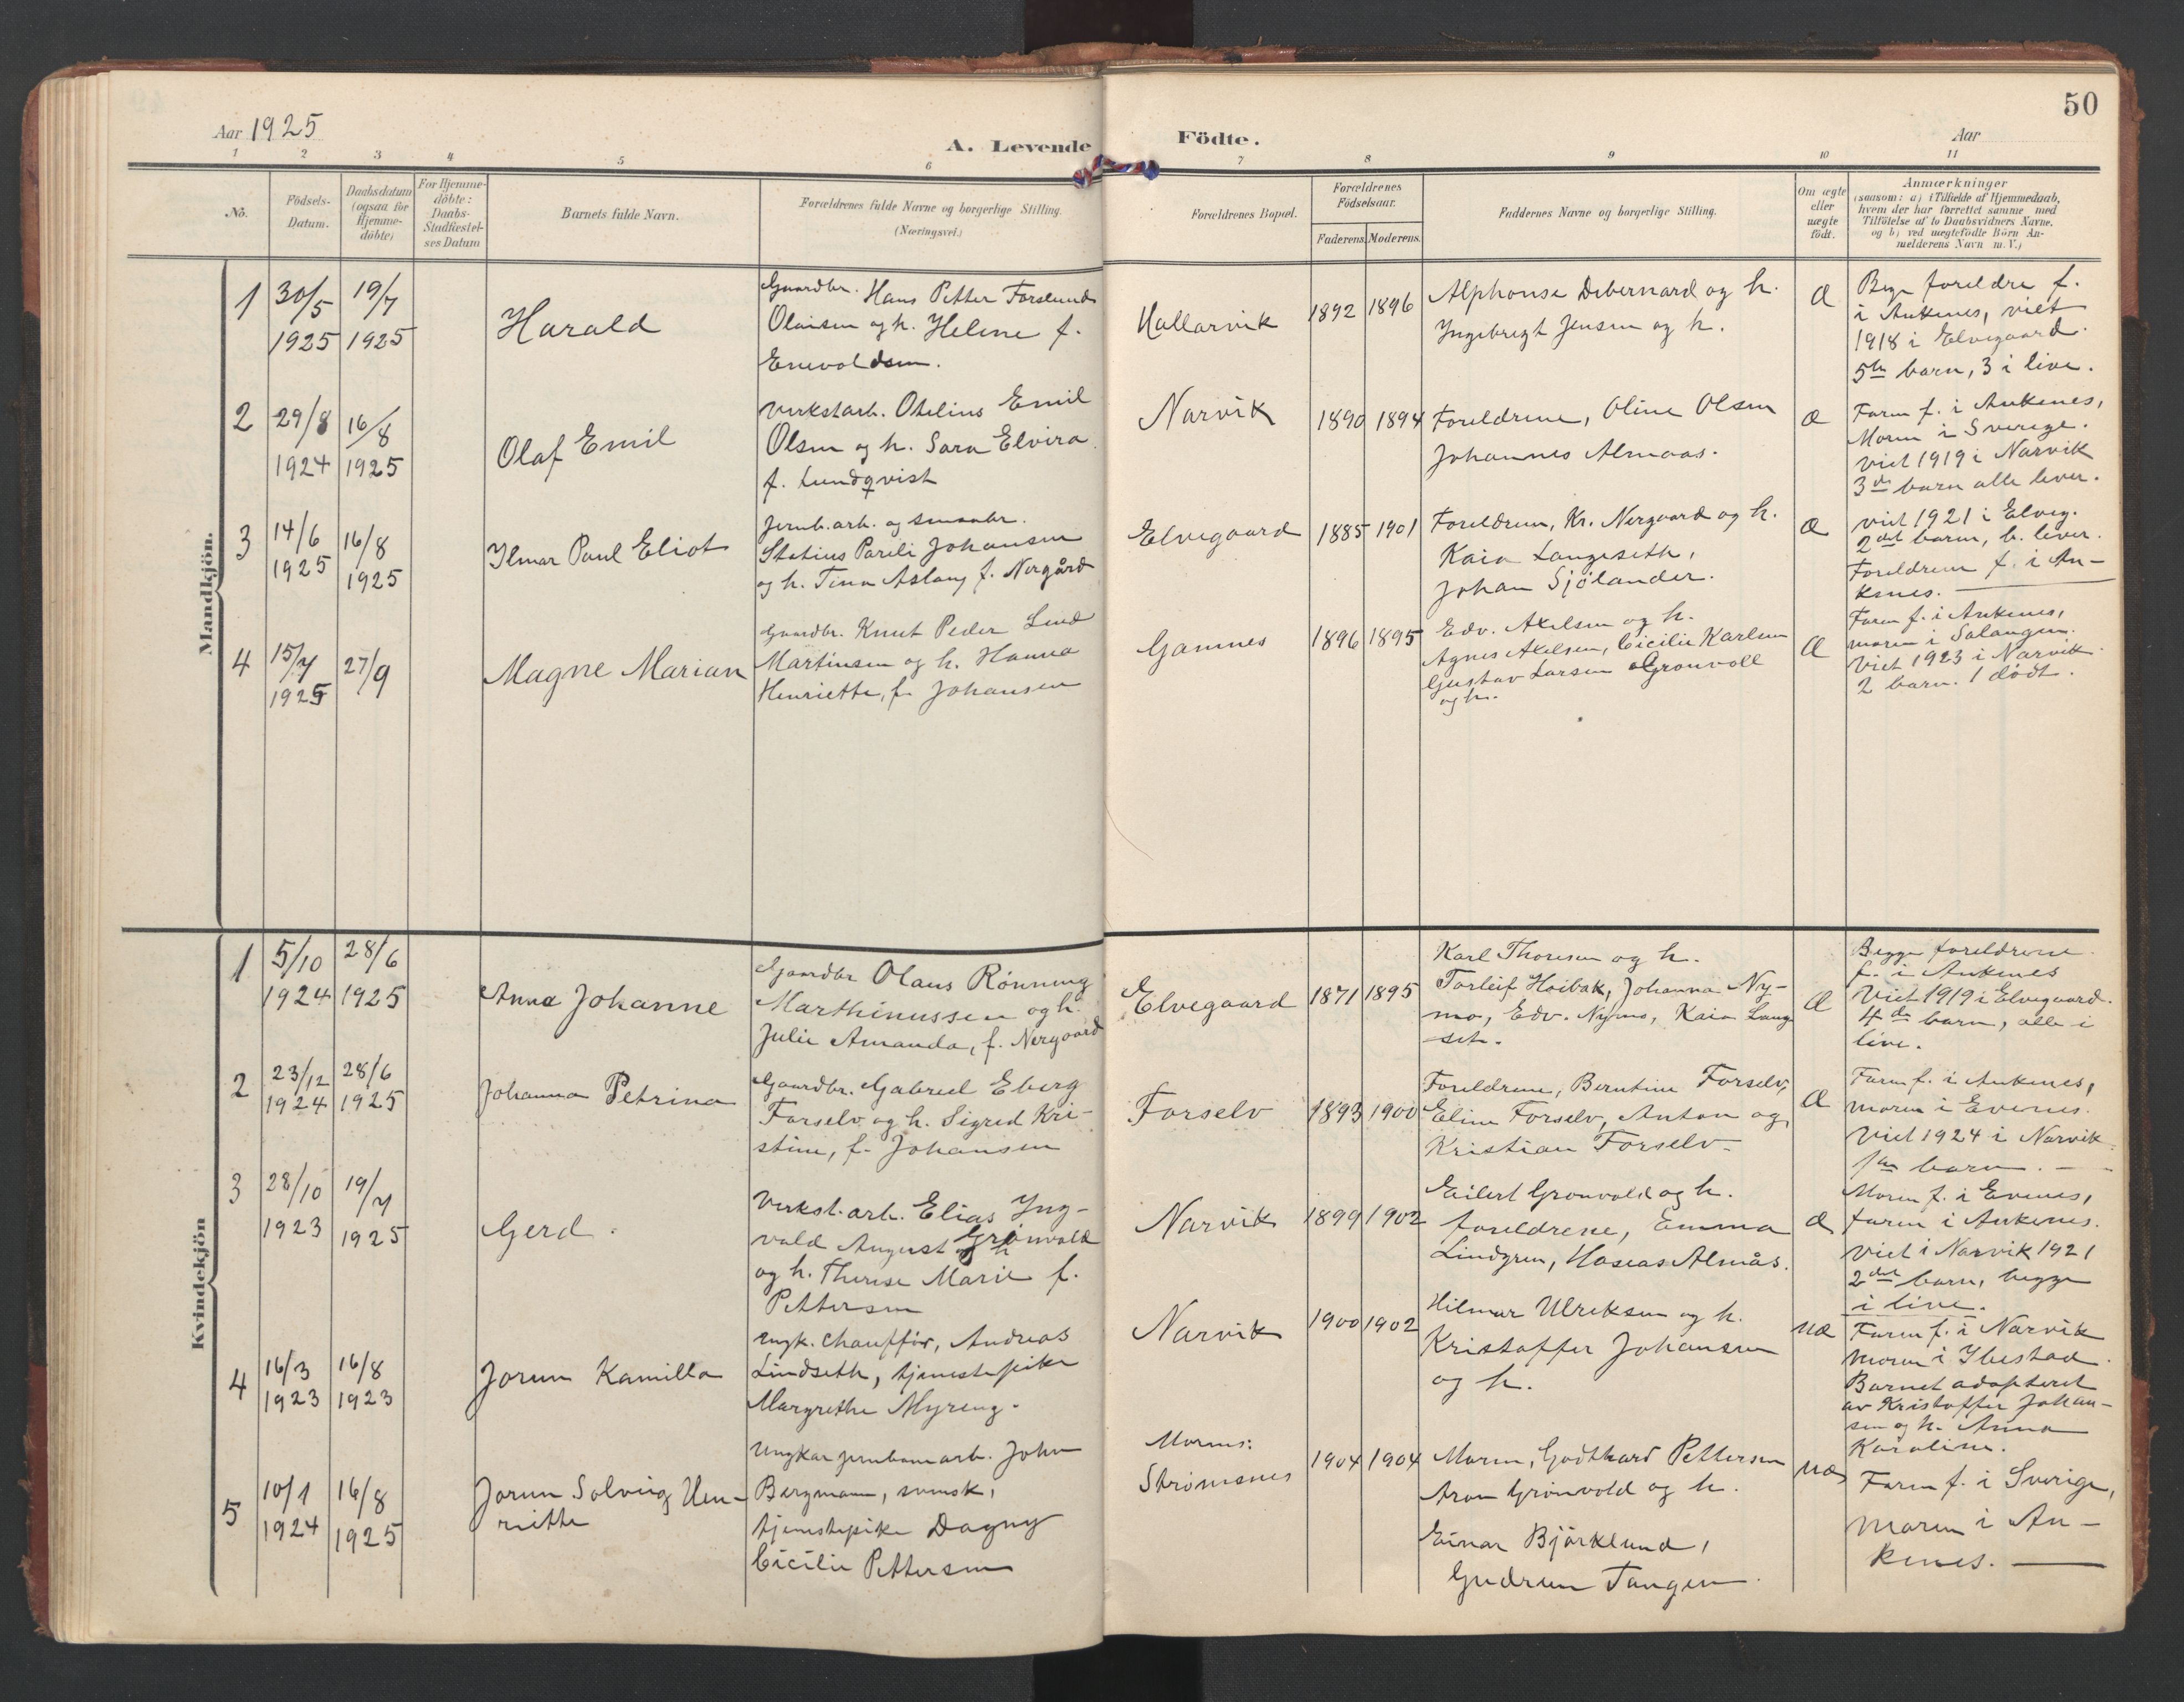 50
Aar 1925
A. Levende Födte.
Aar
1 2 3 4 5 6 7 8 9 10 11
No.
Födsels-
Datum.
Daabsdatum
(ogsaa for
Hjemme-
döbte)
For Hjemme-
döbte:
Daabs-
Stadfæstel-
ses Datum
Barnets fulde Navn.
Forældrenes fulde Navne og borgerlige Stilling.
(Næringsvei.)
Forældrenes Bopæl.
Forældrenes
Födselsaar.
Faderens. Moderens.
Faddernes Navne og borgerlige Stilling.
Om ægte
eller
uægte
födt.
Anmærkninger
(saasom: a) i Tilfælde af Hjemmedaab,
hvem der har forrettet samme med
Tilföielse af to Daabsvidners Navne.
og b) ved uægtefödte Börn An-
melderens Navn m. V.)
Mandkjön.
1
30/5
1925
19/7
1925
Harald
Gaardbr. Hans Petter Forslund
Olaisen og h. Helene f.
Enevoldsen.
Hallarvik
1892 1896
Alphonse Debernard og h.
Ingebregt Jensen og h.
Æ
Begge foreldre f.
i Ankenes, viet
1918 i Elvegaard.
5te barn, 3 i live.
2
29/8
1924
16/8
1925
Olaf Emil
Verkstarb. Otelius Emil
Olsen og h. Sara Elvira
f. Lundqvist
Narvik
1890 1894
Foreldrene, Oline Olsen
Johannes Almaas.
æ
Faren f. i Ankenes,
Moren i Sverige.
viet 1919 i Narvik
3de barn alle lever.
3
14/6
1925
16/8
1925
Ilmar Paul Eliot
Jernb.arb. og smaabr.
Statius Pareli Johansen
og h. Tina Aslaug f. Nergård
Elvegaard
1885 1901
Foreldrene, Kr. Nergaard og h.
Kaia Langeseth,
Johan Sjölander.
æ
viet 1921 i Elveg.
2det barn, b. lever.
Foreldrene f. i An-
kenes.
4
15/7
1925
27/9
Magne Marian
Gaardbr. Knut Peder Lund
Martinsen og h. Hanna
Henriette, f. Johansen
Gamnes
1896 1895
Edv. Axelsen og h.
Agnes Axelsen, Cicilie Karlsen
Gustav Larsen Grønvoll
og h.
Æ
Faren f. i Ankenes,
moren i Salangen.
Viet 1923 i Narvik.
2 barn. 1 dödt.
Kvindekjön
1
5/10
1924
28/6
1925
Anna Johanne
Gaardbr Olaus Rönning
Marthinussen og h.
Julie Amanda, f. Nergaard
Elvegaard
1871 1895
Karl Thoresen og h.
Torleif Hoibak, Johanna Ny-
mo, Edv. Nymo, Kaia Lang
set.
Æ
Begge foreldrene
f. i Ankenes
Viet 1919 i Elvegaard.
4de barn, alle i
live.
2
23/12
1924
28/6
1925
Johanna Petrina
Gaardbr. Gabriel Eberg
Forselv og h. Sigrid Kri-
stine, f. Johansen
Forselv
1893 1900
Foreldrene, Berntine Forselv,
Eline Forselv, Anton og
Kristian Forselv
Æ
Faren f. i Ankenes,
moren i Evenes.
Viet 1924 i Narvik
1ste barn.
3
28/10
1923
19/7
1925
Gerd.
Verkst.arb. Elias Ing-
vald August Grönvold
og h. Therese Marie f.
Pettersen
Narvik
1899 1902
Eilert Gronvold og h.
foreldrene, Emma
Lindgren, Haseas Almås.
æ
Moren f. i Evenes,
faren i Ankenes.
viet i Narvik 1921
2det barn, begge
i live.
4
16/3
1923
16/8
1923
Jorun Kamilla
ungk. chaufför, Andreas
Lindseth, tjenestepike
Margrethe Myreng.
Narvik
1900 1902
Hilmar Ulriksen og h.
Kristoffer Johansen
og h.
uæ
Faren f. i Narvik
moren i Ibestad.
Barnet adopteret
av Kristoffer Johan-
sen og h. Anna
Karoline.
5
10/1
1924
16/8
1925
Jorun Solveig Hen-
riette
Ungkar jernbanearb. John
Bergmann, svensk,
tjenestepike Dagny
Cicilie Pettersen
Morens:
Strömsnes
1904 1904
Moren, Godthard Pettersen
Aron Grönvold og h.
Einar Björklund,
Gudrun Tangen.
uæ
Faren f. i Sverige,
moren i An-
kenes.